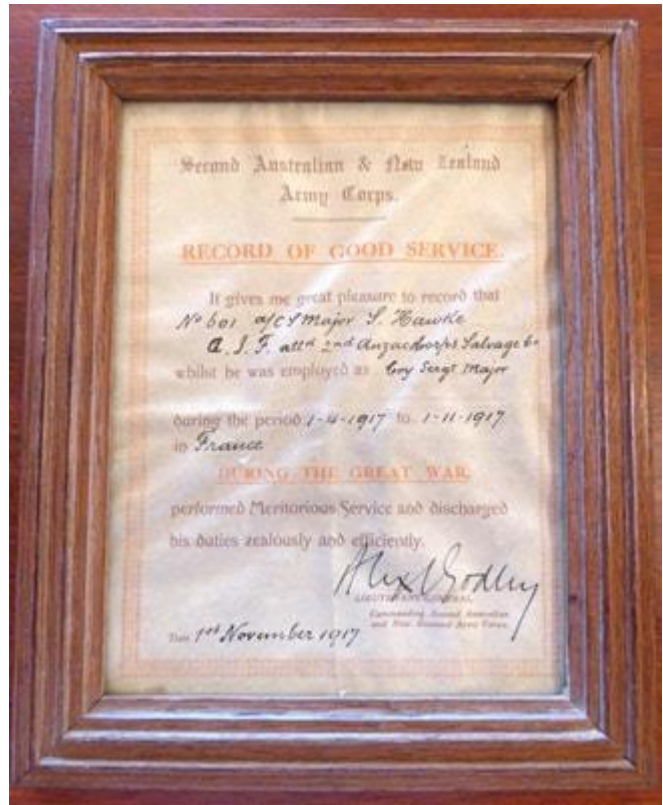 Second Australian & New Zealand
Army Corps.
RECORD OF GOOD SERVICE.
It gives me great pleasure to record that
No 601 a/CS Major S. Hawke
A.I.F. attd 2nd Anzac Corps Salvage Co
whilst he was employed as Coy Sergt Major
during the period 1-4-1917 to 1-11-1917
in France
DURING THE GREAT WAR
performed Meritorious Service and discharged
his duties zealously and efficiently.
Alex Godley
LIEUTENANT GENERAL,
Commanding Second Australian
and New Zealand Army Corps.
Date 1st November 1917